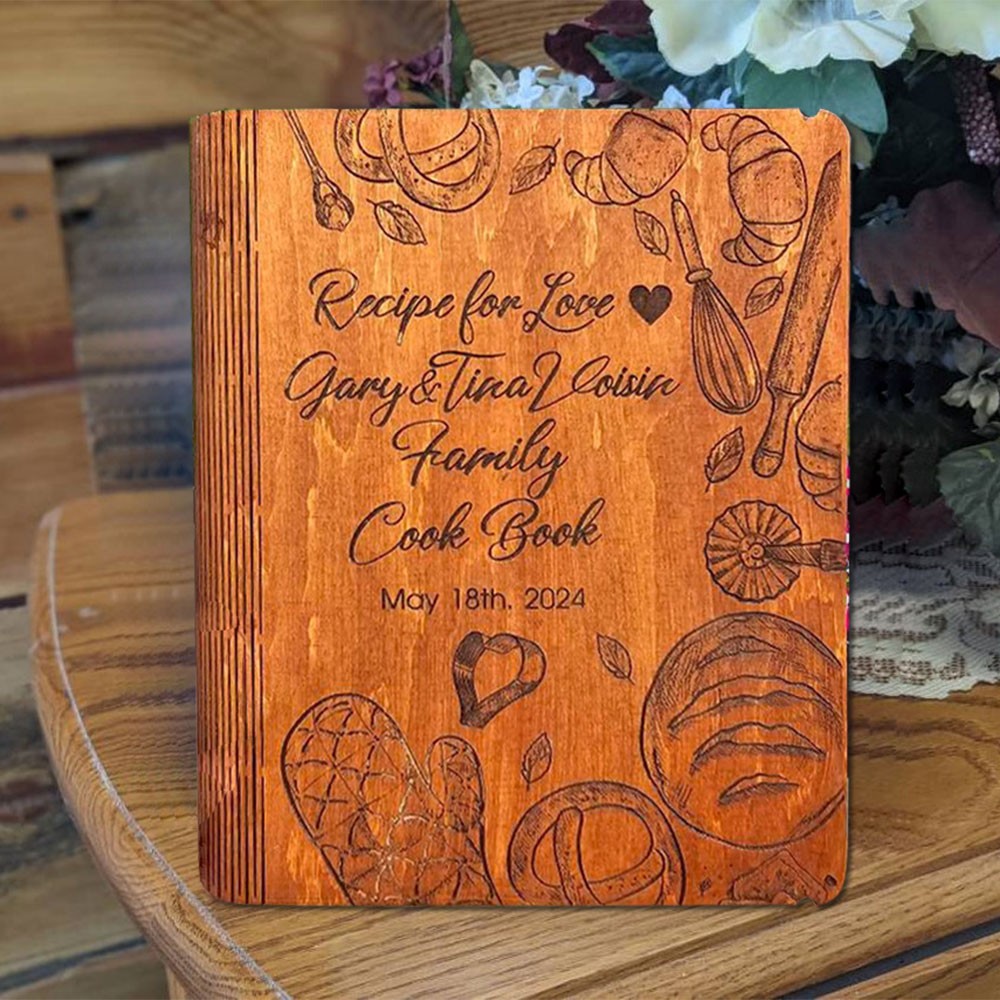 Recipe for Love ♥
Gary & Tina Lloisin
Family
Cook Book
May 18th. 2024